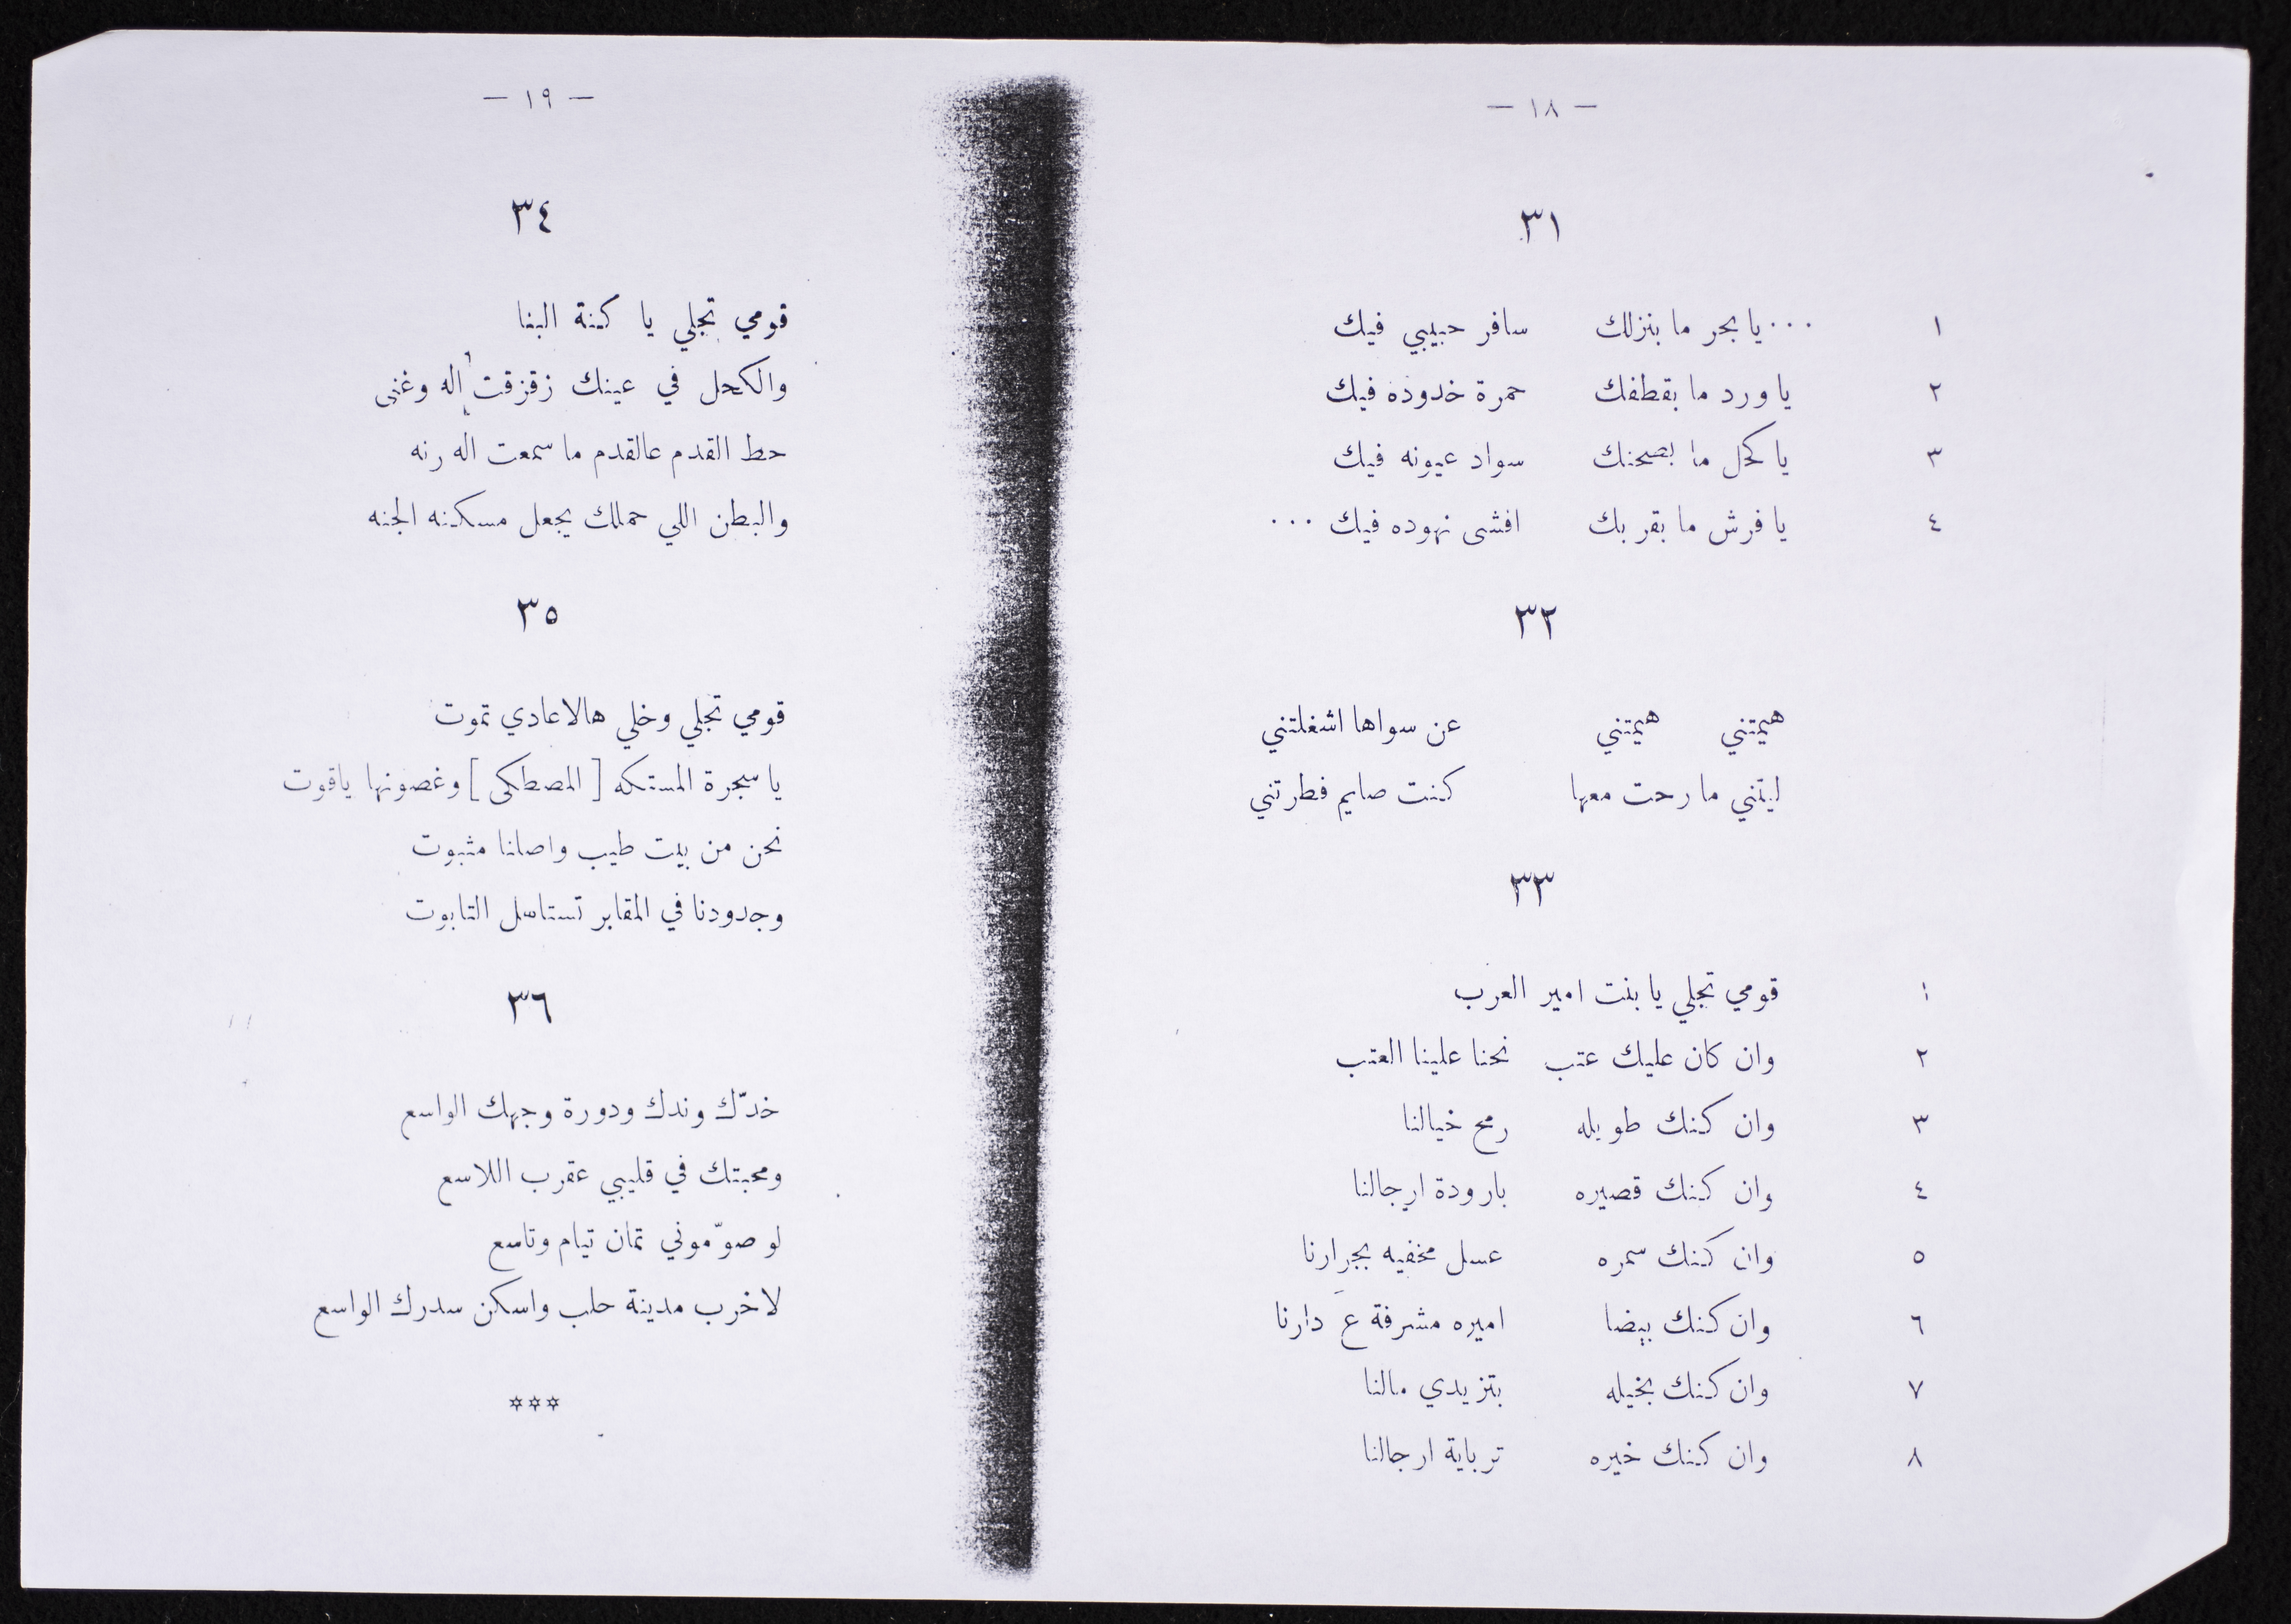 — ١٨ —
٣١
١ ... يا بحر ما بنزلك سافر حبيبي فيك
٢ يا ورد ما بقطفك حمرة خدوده فيك
٣ يا كحل ما بصحنك سواد عيونه فيك
٤ يا فرش ما بقربك افشى نهوده فيك ...
٣٢
هيمتني هيمتني عن سواها اشغلتني
ليتني ما رحت معها كنت صايم فطرتني
٣٣
١ قومي تجلي يا بنت امير العرب
٢ وان كان عليك عتب نحنا علينا العتب
٣ وان كنك طويله رمح خيالنا
٤ وان كنك قصيره بارودة ارجالنا
٥ وان كنك سمره عسل مخفيه بجرارنا
٦ وان كنك بيضا اميره مشرفة عَ دارنا
٧ وان كنك بخيله بتزيدي مالنا
٨ وان كنك خيره ترباية ارجالنا
— ١٩ —
٣٤
قومي تجلي يا كنة البنا
والكحل في عينك زقزقت اله وغنى
حط القدم عالقدم ما سمعت اله رنه
والبطن اللي حملك يجعل مسكنه الجنه
٣٥
قومي تجلي وخلي هالاعادي تموت
يا سجرة المستكه [المصطكى] وغصونها ياقوت
نحن من بيت طيب واصلنا مثبوت
وجدودنا في المقابر تستاهل التابوت
٣٦
خدّك وندك ودورة وجهك الواسع
ومحبتك في قليبي عقرب اللاسع
لو صوّموني تمان تيام وتاسع
لاخرب مدينة حلب واسكن سدرك الواسع
***